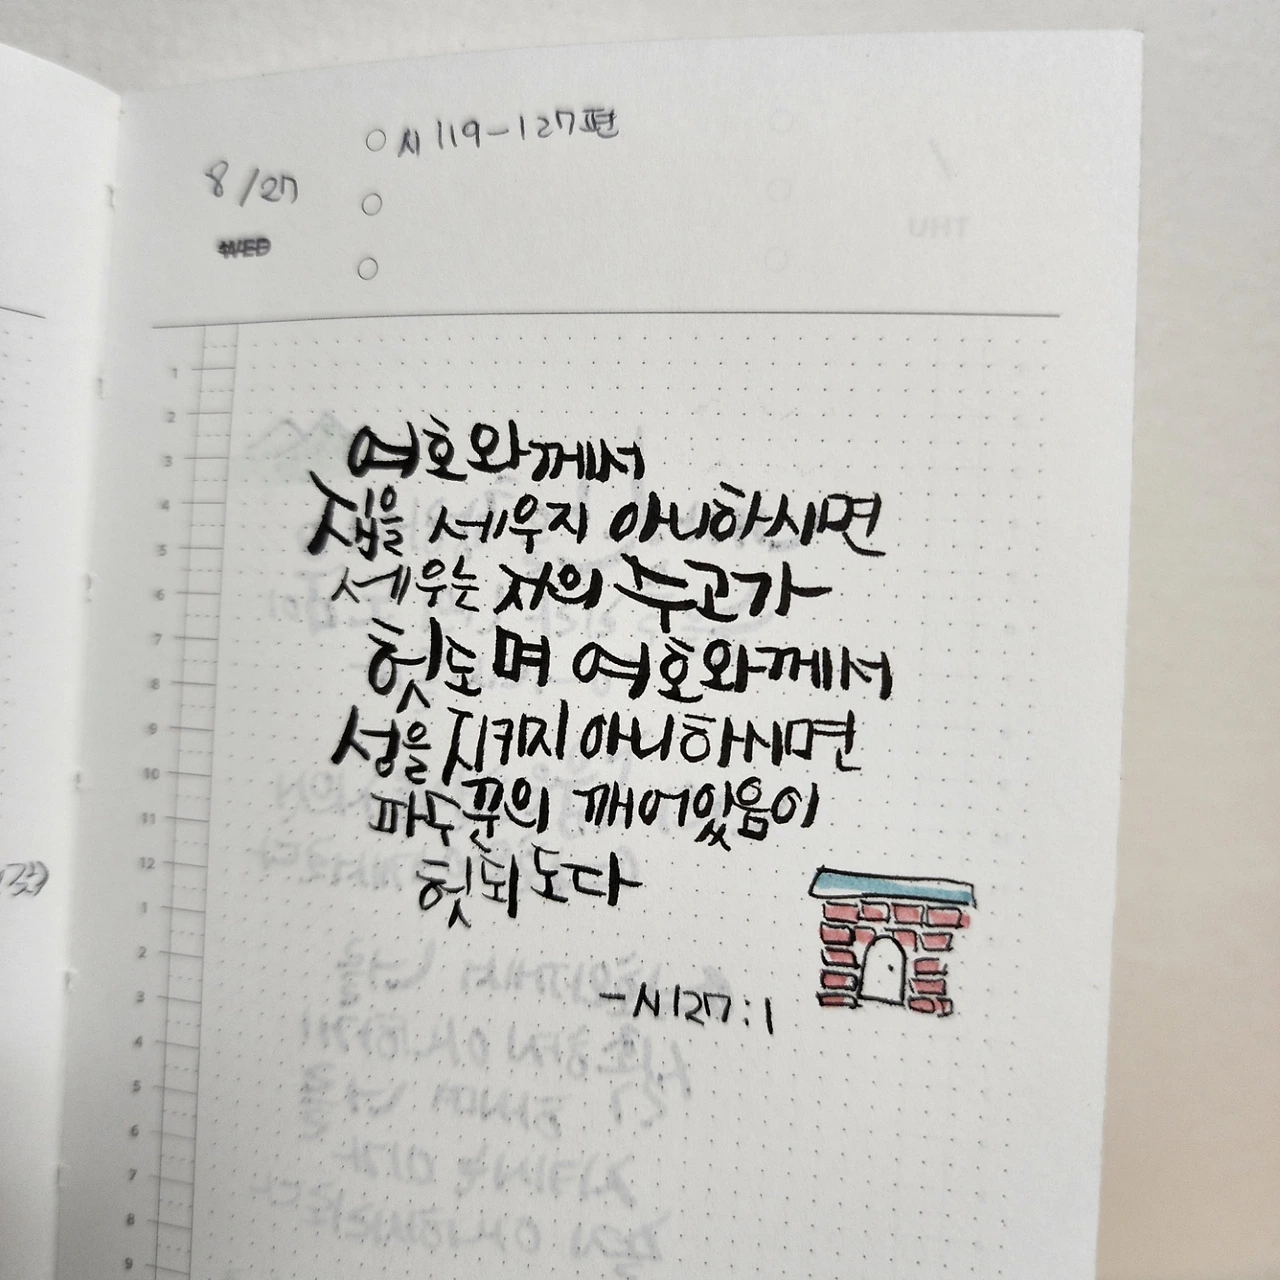 시 119-127편
8/27
WED
여호와께서
집을 세우지 아니하시면
세우는 자의 수고가
헛되며 여호와께서
성을 지키지 아니하시면
파수꾼의 깨어있음이
헛되도다
-시127:1
THU
1
2
3
4
5
6
7
8
9
10
11
12
1
2
3
4
5
6
7
8
9